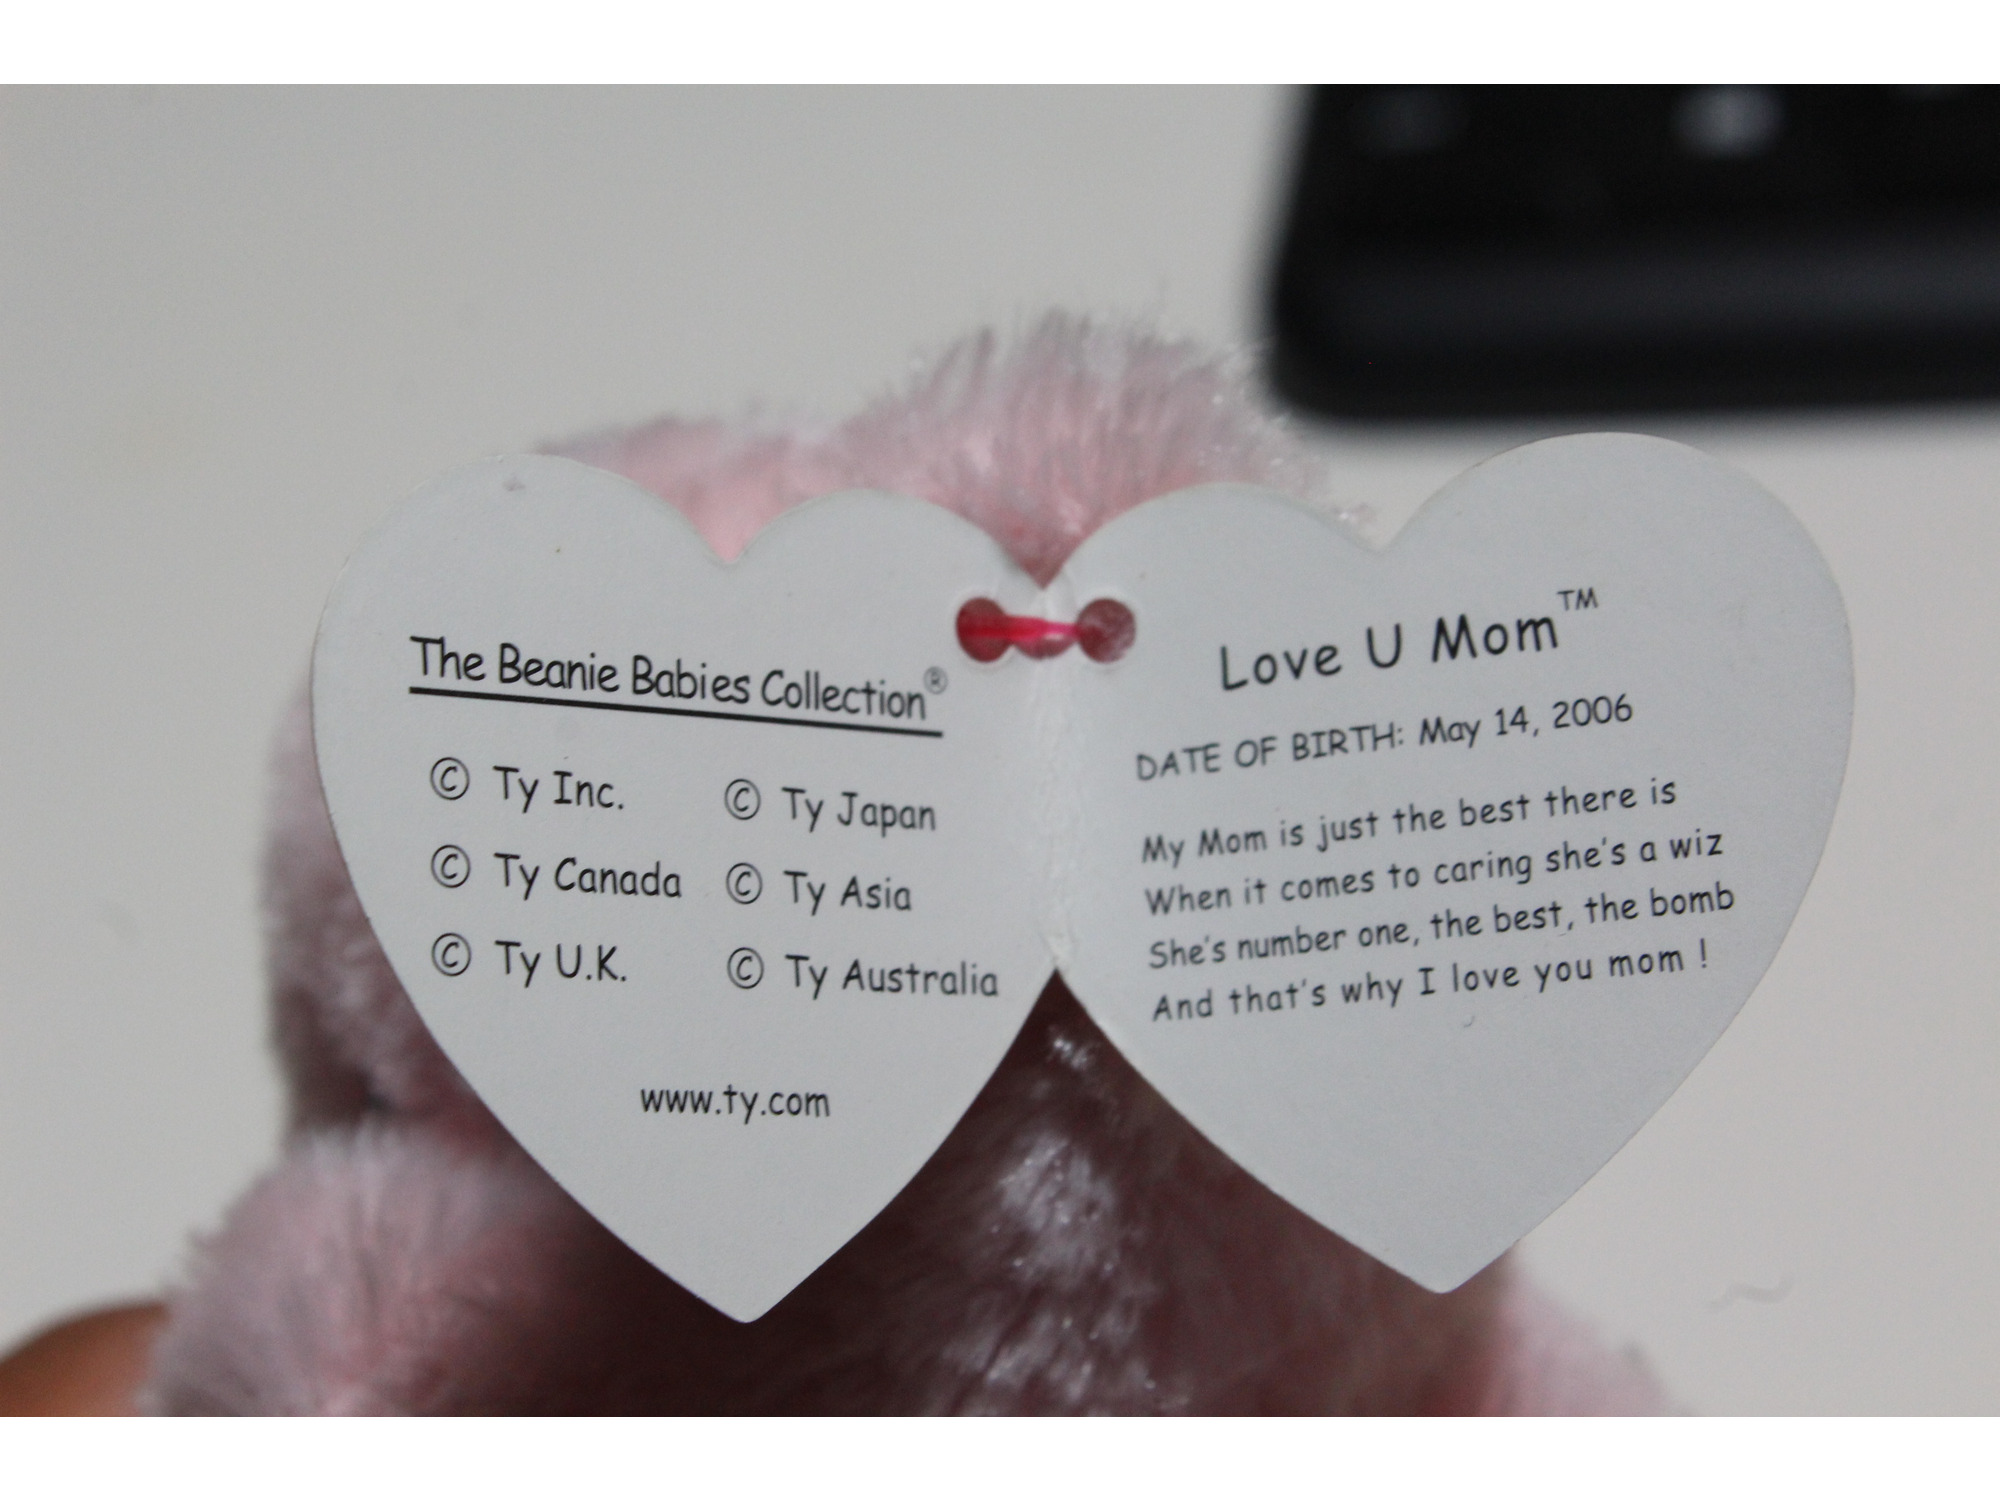 The Beanie Babies Collection®
© Ty Inc.
© Ty Canada
© Ty U.K.
© Ty Japan
© Ty Asia
© Ty Australia
www.ty.com
Love U Mom™
DATE OF BIRTH: May 14, 2006
My Mom is just the best there is
When it comes to caring she's a wiz
She's number one, the best, the bomb
And that's why I love you mom !